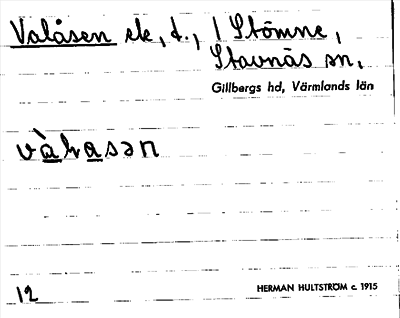 Valåsen ek, t., 1 Stömne,
Stavnäs sn.
Gillbergs hd, Värmlands län
vàlasən
12
HERMAN HULTSTRÖM c. 1915